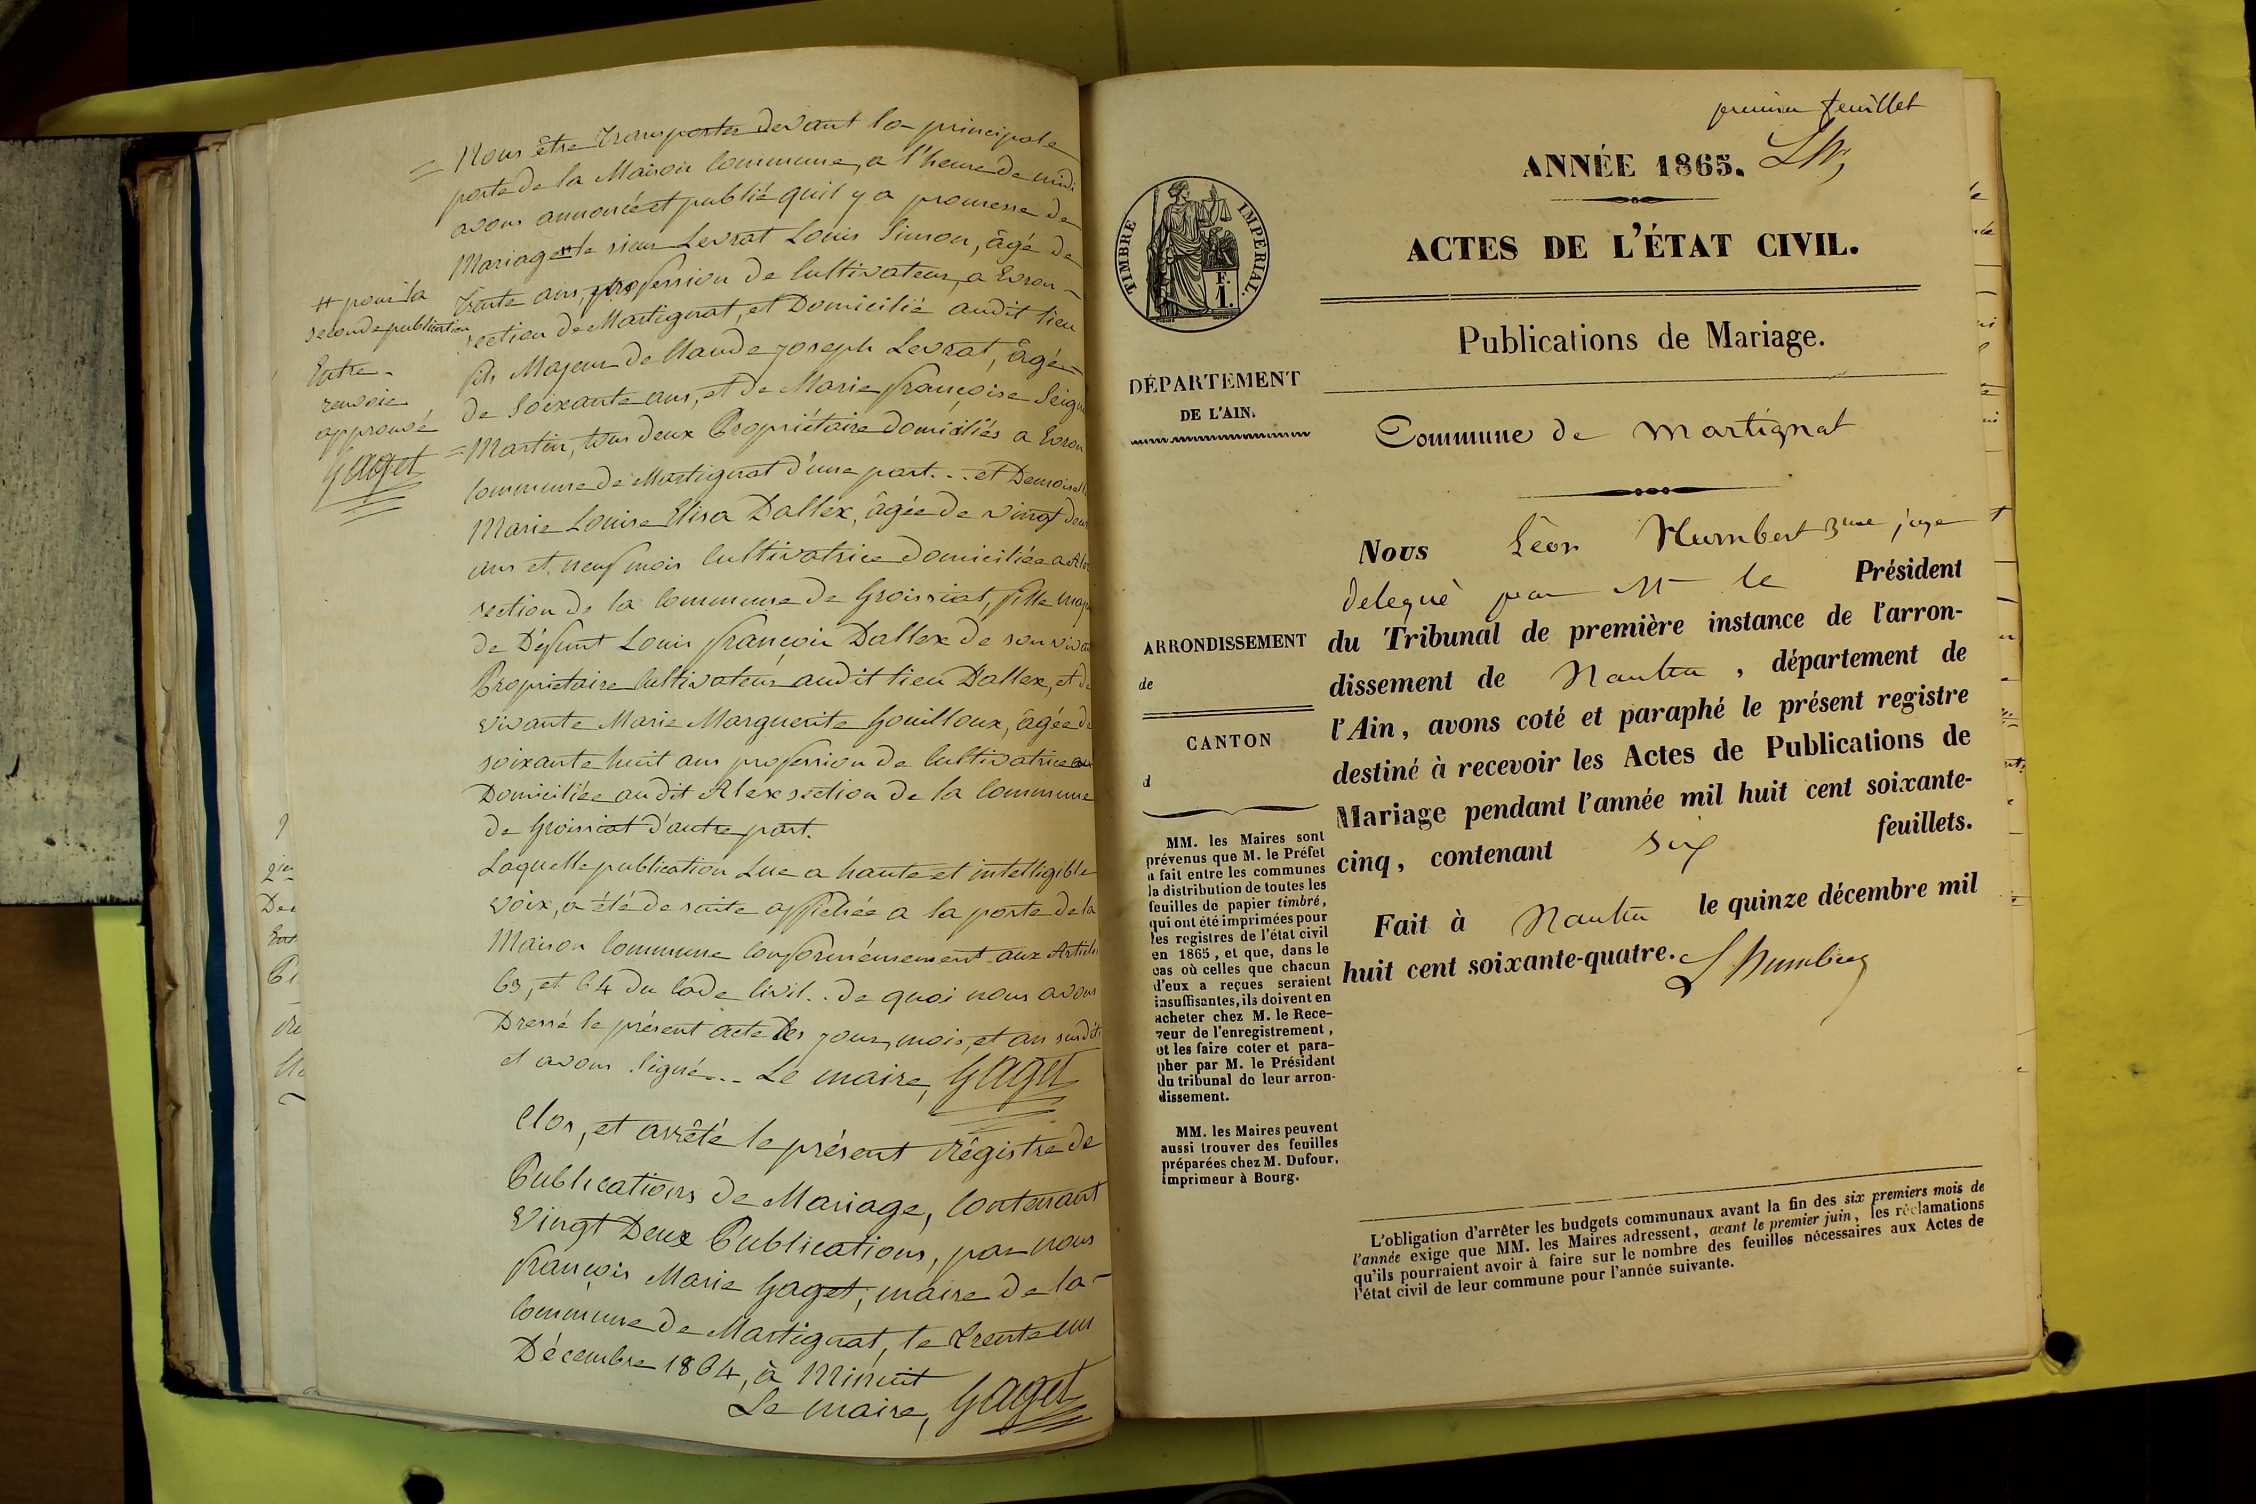 = Nous être transportés devant la principale
porte de la Maison Commune, a l'heure de midi
avons annoncé et publié qu'il y a promesse de
Mariage # le sieur Levrat Louis Simon, âgé de
trente ans, profession de Cultivateur, a Evron
section de Martignat, et Domicilié audit lieu
fils Majeur de Claude Joseph Levrat, âgé
de Soixante ans, et de Marie françoise Seigne
= Martin, tous deux Propriétaire domiciliés a Evron
Commune de Martignat d'une part. .. et Demoiselle
Marie Louise Elisa Dallex, âgée de vingt deux
ans et neuf mois Cultivatrice domiciliée a Alex
section de la commune de Groissiat, fille maje
de Défunt Louis françois Dallex de son viva
Propriétaire Cultivateur audit lieu Dallex, et de
vivante Marie Marguerite Gouilloux, âgée de
soixante huit ans profession de Cultivatrice
Domiciliée audit Alex section de la Commune
de Groissiat d'autre part.
Laquelle publication Lue a haute et intelligible
voix, a été de suite affichée a la porte de la
Maison Commune conformément aux Articles
63, et 64 du Code Civil. . de quoi nous avons
Dressé le présent acte les jour, mois, et an susdits
et avons signé... Le maire, Gaget
Clos, et arrêté le présent régistre de
Publications de Mariage, Contenant
Vingt Deux Publications, par nous
françois Marie Gaget, maire de la
Commune de Martignat, le trente un
Décembre 1864, à Minuit
Le maire, Gaget
# pour la
seconde publication
Entre
renvoie
approuvé
Gaget
premier feuillet
LH
ANNÉE 1865.
ACTES DE L'ÉTAT CIVIL.
Publications de Mariage.
Commune de Martignat
TIMBRE IMPERIAL.
F.
1.
DÉPARTEMENT
DE L'AIN.
ARRONDISSEMENT
de
CANTON
d
MM. les Maires sont
prévenus que M. le Préfet
a fait entre les communes
la distribution de toutes les
feuilles de papier timbré,
qui ont été imprimées pour
les registres de l'état civil
en 1865, et que, dans le
cas où celles que chacun
d'eux a reçues seraient
insuffisantes, ils doivent en
acheter chez M. le Rece-
veur de l'enregistrement,
et les faire coter et para-
pher par M. le Président
du tribunal de leur arron-
dissement.
MM. les Maires peuvent
aussi trouver des feuilles
préparées chez M. Dufour,
imprimeur à Bourg.
Nous Léon Humbert 3me juge
delegué par M le Président
du Tribunal de première instance de l'arron-
dissement de Nantua, département de
l'Ain, avons coté et paraphé le présent registre
destiné à recevoir les Actes de Publications de
Mariage pendant l'année mil huit cent soixante-
cinq, contenant six feuillets.
Fait à Nantua le quinze décembre mil
huit cent soixante-quatre. L Humbert
L'obligation d'arrêter les budgets communaux avant la fin des six premiers mois de
l'année exige que MM. les Maires adressent, avant le premier juin, les réclamations
qu'ils pourraient avoir à faire sur le nombre des feuilles nécessaires aux Actes de
l'état civil de leur commune pour l'année suivante.